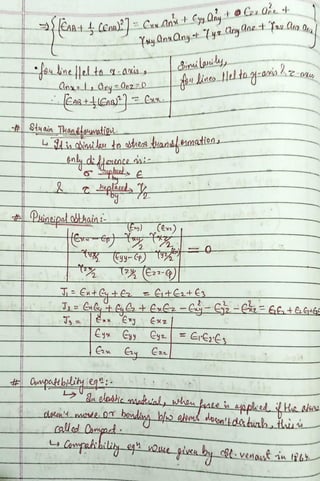 ⇒ {[ЄAB + 1/2 (ЄAB)²] = Єxx anx² + Єyy any² + Єzz anz² +
γxy anx any + γyz any anz + γxz anx anz
• for line ||el to x-axis,
anx=1, any=anz=0
∴ [ЄAB + 1/2 (ЄAB)²] = Єxx.
Similarly,
for lines ||el to y-axis & z-axis
# Strain Transformation
↳ It is similar to stress transformation,
only difference is:-
σ replaced by → Є
& τ replaced by → γ/2
# Principal strain:-
(Єxy) (Єxz)
|(Єxx-Єp) γxy/2 γxz/2|
|γyx/2 (Єyy-Єp) γyz/2| = 0
|γzx/2 γzy/2 (Єzz-Єp)|
J1 = Єx+Єy+Єz = Є1+Є2+Є3
J2 = ЄxЄy + ЄyЄz + ЄxЄz - Єxy² - Єyz² - Єxz² = Є1Є2+Є2Є3+
J3 = |Єxx Єxy Єxz|
|Єyx Єyy Єyz| = Є1·Є2·Є3
|Єzx Єzy Єzz|
# Compatibility eqⁿ:-
↳ In elastic material, when force is applied if the atoms
doesn't move or bonding b/w atoms doesn't disturb, this is
called Compact.
↳ Compatibility eqⁿ were given by St. venant in